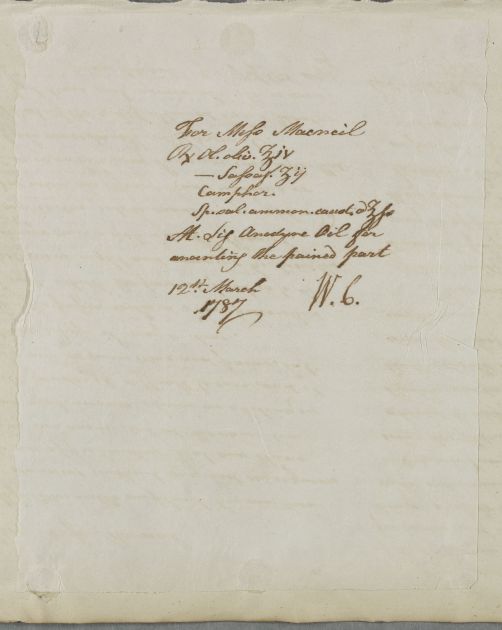 For Miss Macneil
℞ Ol. oliv. ℥iv
— Sassaf. ʒij
Camphor.
Sp. sal. ammon. caust. a ℥ss
M. Sig Anodyne Oil for
anointing the pained part
12th. March
1787
W. C.